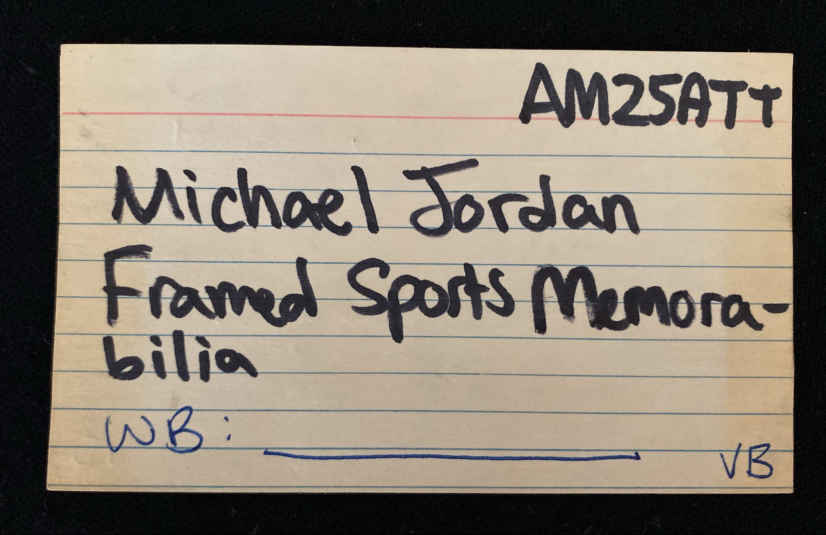 AM25ATT
Michael Jordan
Framed Sports Memora-
bilia
WB: ____________
VB